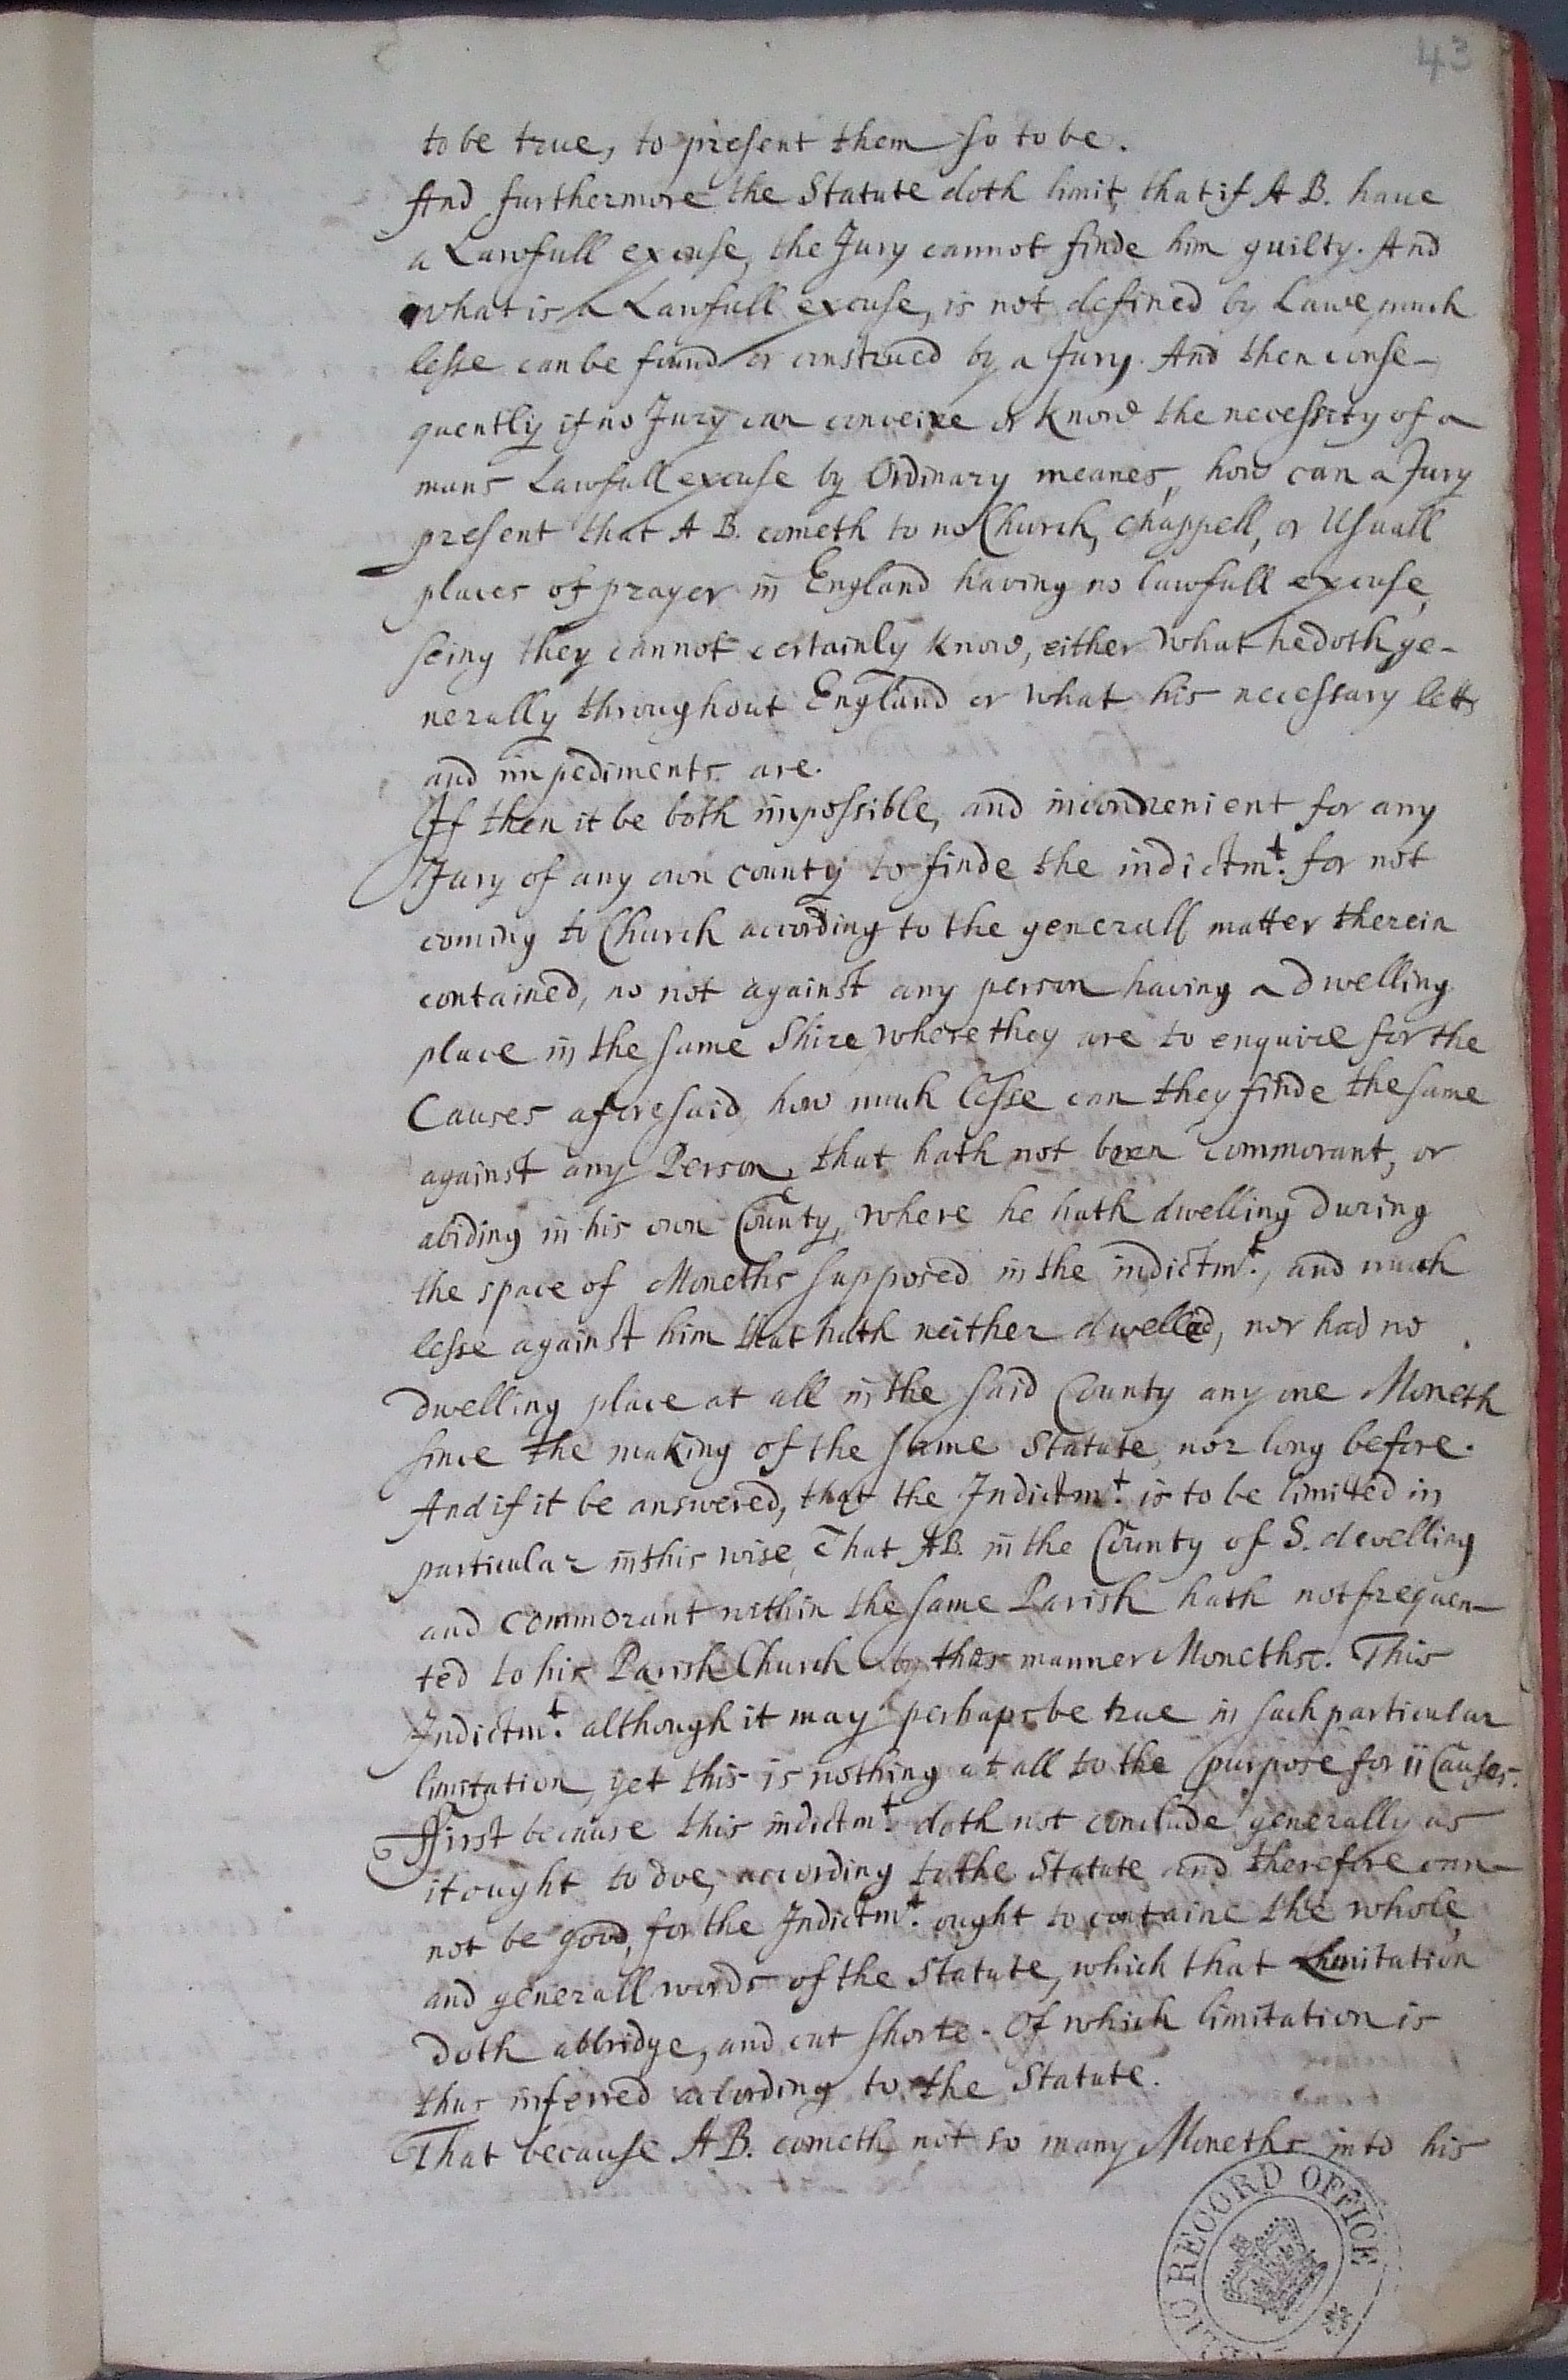 43
to be true, to present them so to be.
And furthermore the Statute doth limit, that if A B. haue
a Lawfull excuse, the Jury cannot finde him guilty. And
what is a Lawfull excuse, is not defined by Lawe, much
lesse can be found or construed by a Jury. And then conse-
quently if no Jury can conveive or know the necessity of a
mans Lawfull excuse by Ordinary meanes, how can a Jury
present that A B. cometh to no Church, Chappell, or Usuall
places of prayer in England having no lawfull excuse,
seing they cannot certainly know, either what he doth ge-
nerally throughout England or what his necessary letts
and impediments are.
If then it be both impossible, and inconvenient for any
Jury of any own county to finde the indictmt. for not
coming to Church according to the generall matter therein
contained, no not against any person having a dwelling
place in the same Shire where they are to enquire for the
Causes aforesaid, how much lesse can they finde the same
against any Person, that hath not been commorant, or
abiding in his own County, where he hath dwelling During
the space of Moneths supposed in the indictmt., and much
lesse against him that hath neither dwelled, nor had no
dwelling place at all in the said County any one Moneth
since the making of the same Statute, nor long before.
And if it be answered, that the Indictmt. is to be limitted in
particular in this wise, That AB. in the County of S. dwelling
and commorant within the same Parish hath not frequen-
ted to his Parish Church by this manner Moneths. This
Indictmt. although it may perhaps be true in such particular
limitation, yet this is nothing at all to the purpose for ii Causes.
First because this indictmt. doth not conclude generally as
it ought to doe, according to the Statute and therefore can-
not be good, for the Indictmt. ought to containe the whole,
and generall words of the Statute, which that Limitation
doth abbridge, and cut shorte. Of which limitation is
thus inferred according to the Statute.
That because A B. cometh not so many Moneths into his
RECORD OFFICE